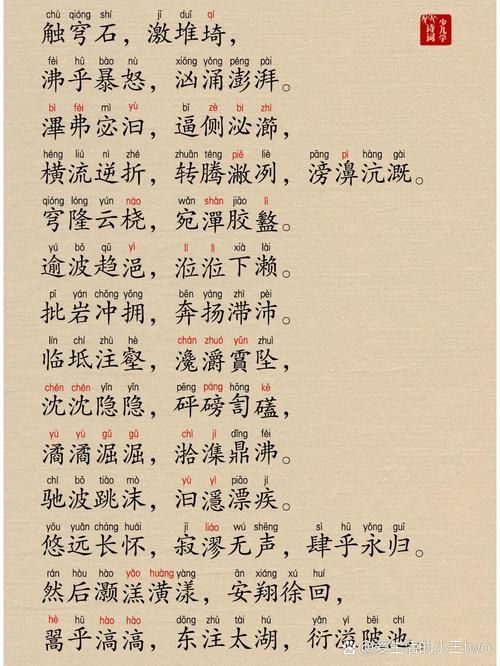 chù qióng shí jī duī qí
触穹石，激堆埼，
少儿学
诗词
fèi hū bào nù xiōng yǒng péng pài
沸乎暴怒，汹涌澎湃。
bì fèi mì yù bī zè bì zhì
滭弗宓汩，逼侧泌瀄，
héng liú nì zhé zhuǎn téng piē liè pāng pì hàng gài
横流逆折，转腾潎冽，滂濞沆溉。
qióng lóng yún náo wǎn shàn jiāo lì
穹隆云桡，宛潬胶盭。
yú bō qū yì lì lì xià lài
逾波趋浥，涖涖下濑。
pī yán chōng yōng bēn yáng zhì pèi
批岩冲拥，奔扬滞沛。
lín chí zhù hè chán zhuó yǔn zhuì
临坻注壑，瀺灂霣坠，
chén chén yǐn yǐn pēng páng hōng kē
沈沈隐隐，砰磅訇礚，
yù yù gǔ gǔ chì jí dǐng fèi
潏潏淈淈，湁潗鼎沸。
chí bō tiào mò yù yì piāo jí
驰波跳沫，汩㴔漂疾。
yōu yuǎn cháng huái jì liáo wú shēng sì hū yǒng guī
悠远长怀，寂漻无声，肆乎永归。
rán hòu hào yǎo huàng yàng ān xiáng xú huí
然后灏溔潢漾，安翔徐回，
hè hū hào hào dōng zhù tài hú yǎn yì bēi chí
翯乎滈滈，东注太湖，衍溢陂池。
@爱生活的小王two